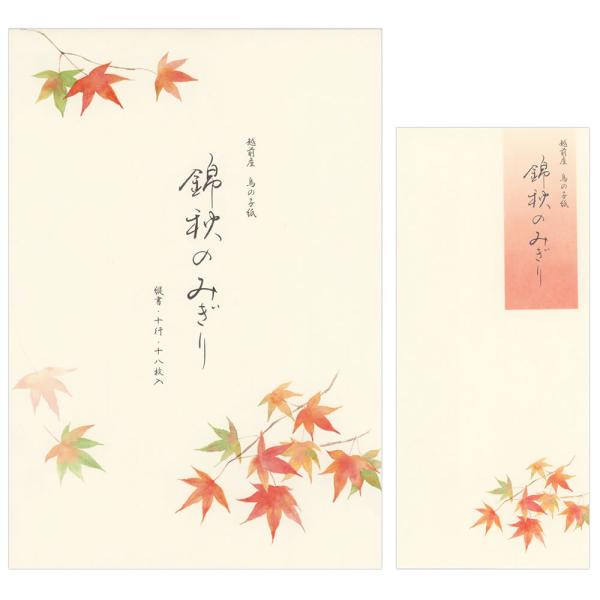 越前産 鳥の子紙
錦秋のみぎり
縦書・十行・十八枚入
越前産 鳥の子紙
錦秋のみぎり